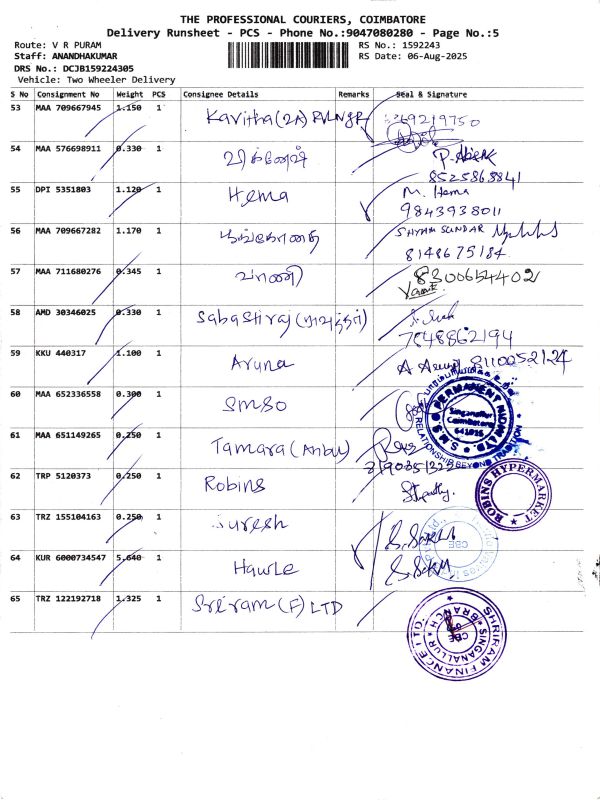 THE PROFESSIONAL COURIERS, COIMBATORE
Delivery Runsheet - PCS - Phone No.:9047080280 - Page No.:5
Route: V R PURAM
RS No.: 1592243
Staff: ANANDHAKUMAR
RS Date: 06-Aug-2025
DRS No.: DCJB159224305
Vehicle: Two Wheeler Delivery
S No Consignment No Weight PCS Consignee Details Remarks Seal & Signature
53 MAA 709667945 1.150 1 Kavitha (2A)
54 MAA 576698911 0.330 1
8525868841
55 DPI 5351803 1.120 1 Hema M. Hema
9843938011
56 MAA 709667282 1.170 1 SHYAM SUNDAR
8148675184
57 MAA 711680276 0.345 1 வாணி 8300654402
58 AMD 30346025 0.330 1 Sabastiraj
7548862194
59 KKU 440317 1.100 1 Aruna
60 MAA 652336558 0.300 1 SMSO
Singanallur
Coimbatore
641015
RELATIONSHIP BEYOND TRADITION
61 MAA 651149265 0.250 1 Tamara (Anbu)
62 TRP 5120373 0.250 1 Robins
ROBINS HYPERMARKET
63 TRZ 155104163 0.250 1 Suresh
64 KUR 6000734547 5.640 1 Hawle
CBE
65 TRZ 122192718 1.325 1 Sriram (F) LTD
SHRIRAM FINANCE LTD.
SINGANALLUR BRANCH
CBE